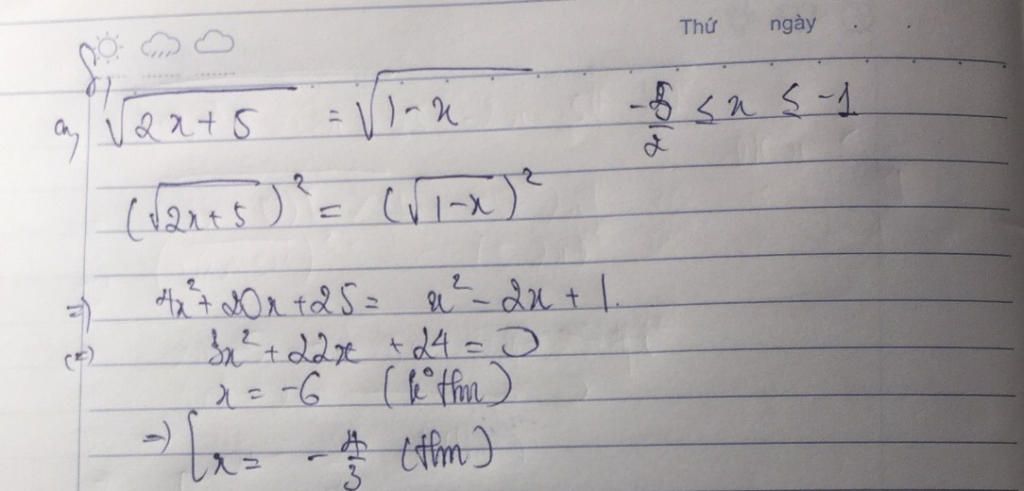 Thứ ngày . .
a, √(2x+5) = √(1-x) -5/2 ≤ x ≤ -1
(√(2x+5))² = (√(1-x))²
=) 4x²+20x+25 = x²-2x+1.
(=) 3x²+22x+24=0
x = -6 (k° tm)
=) [x = -4/3 (tm)